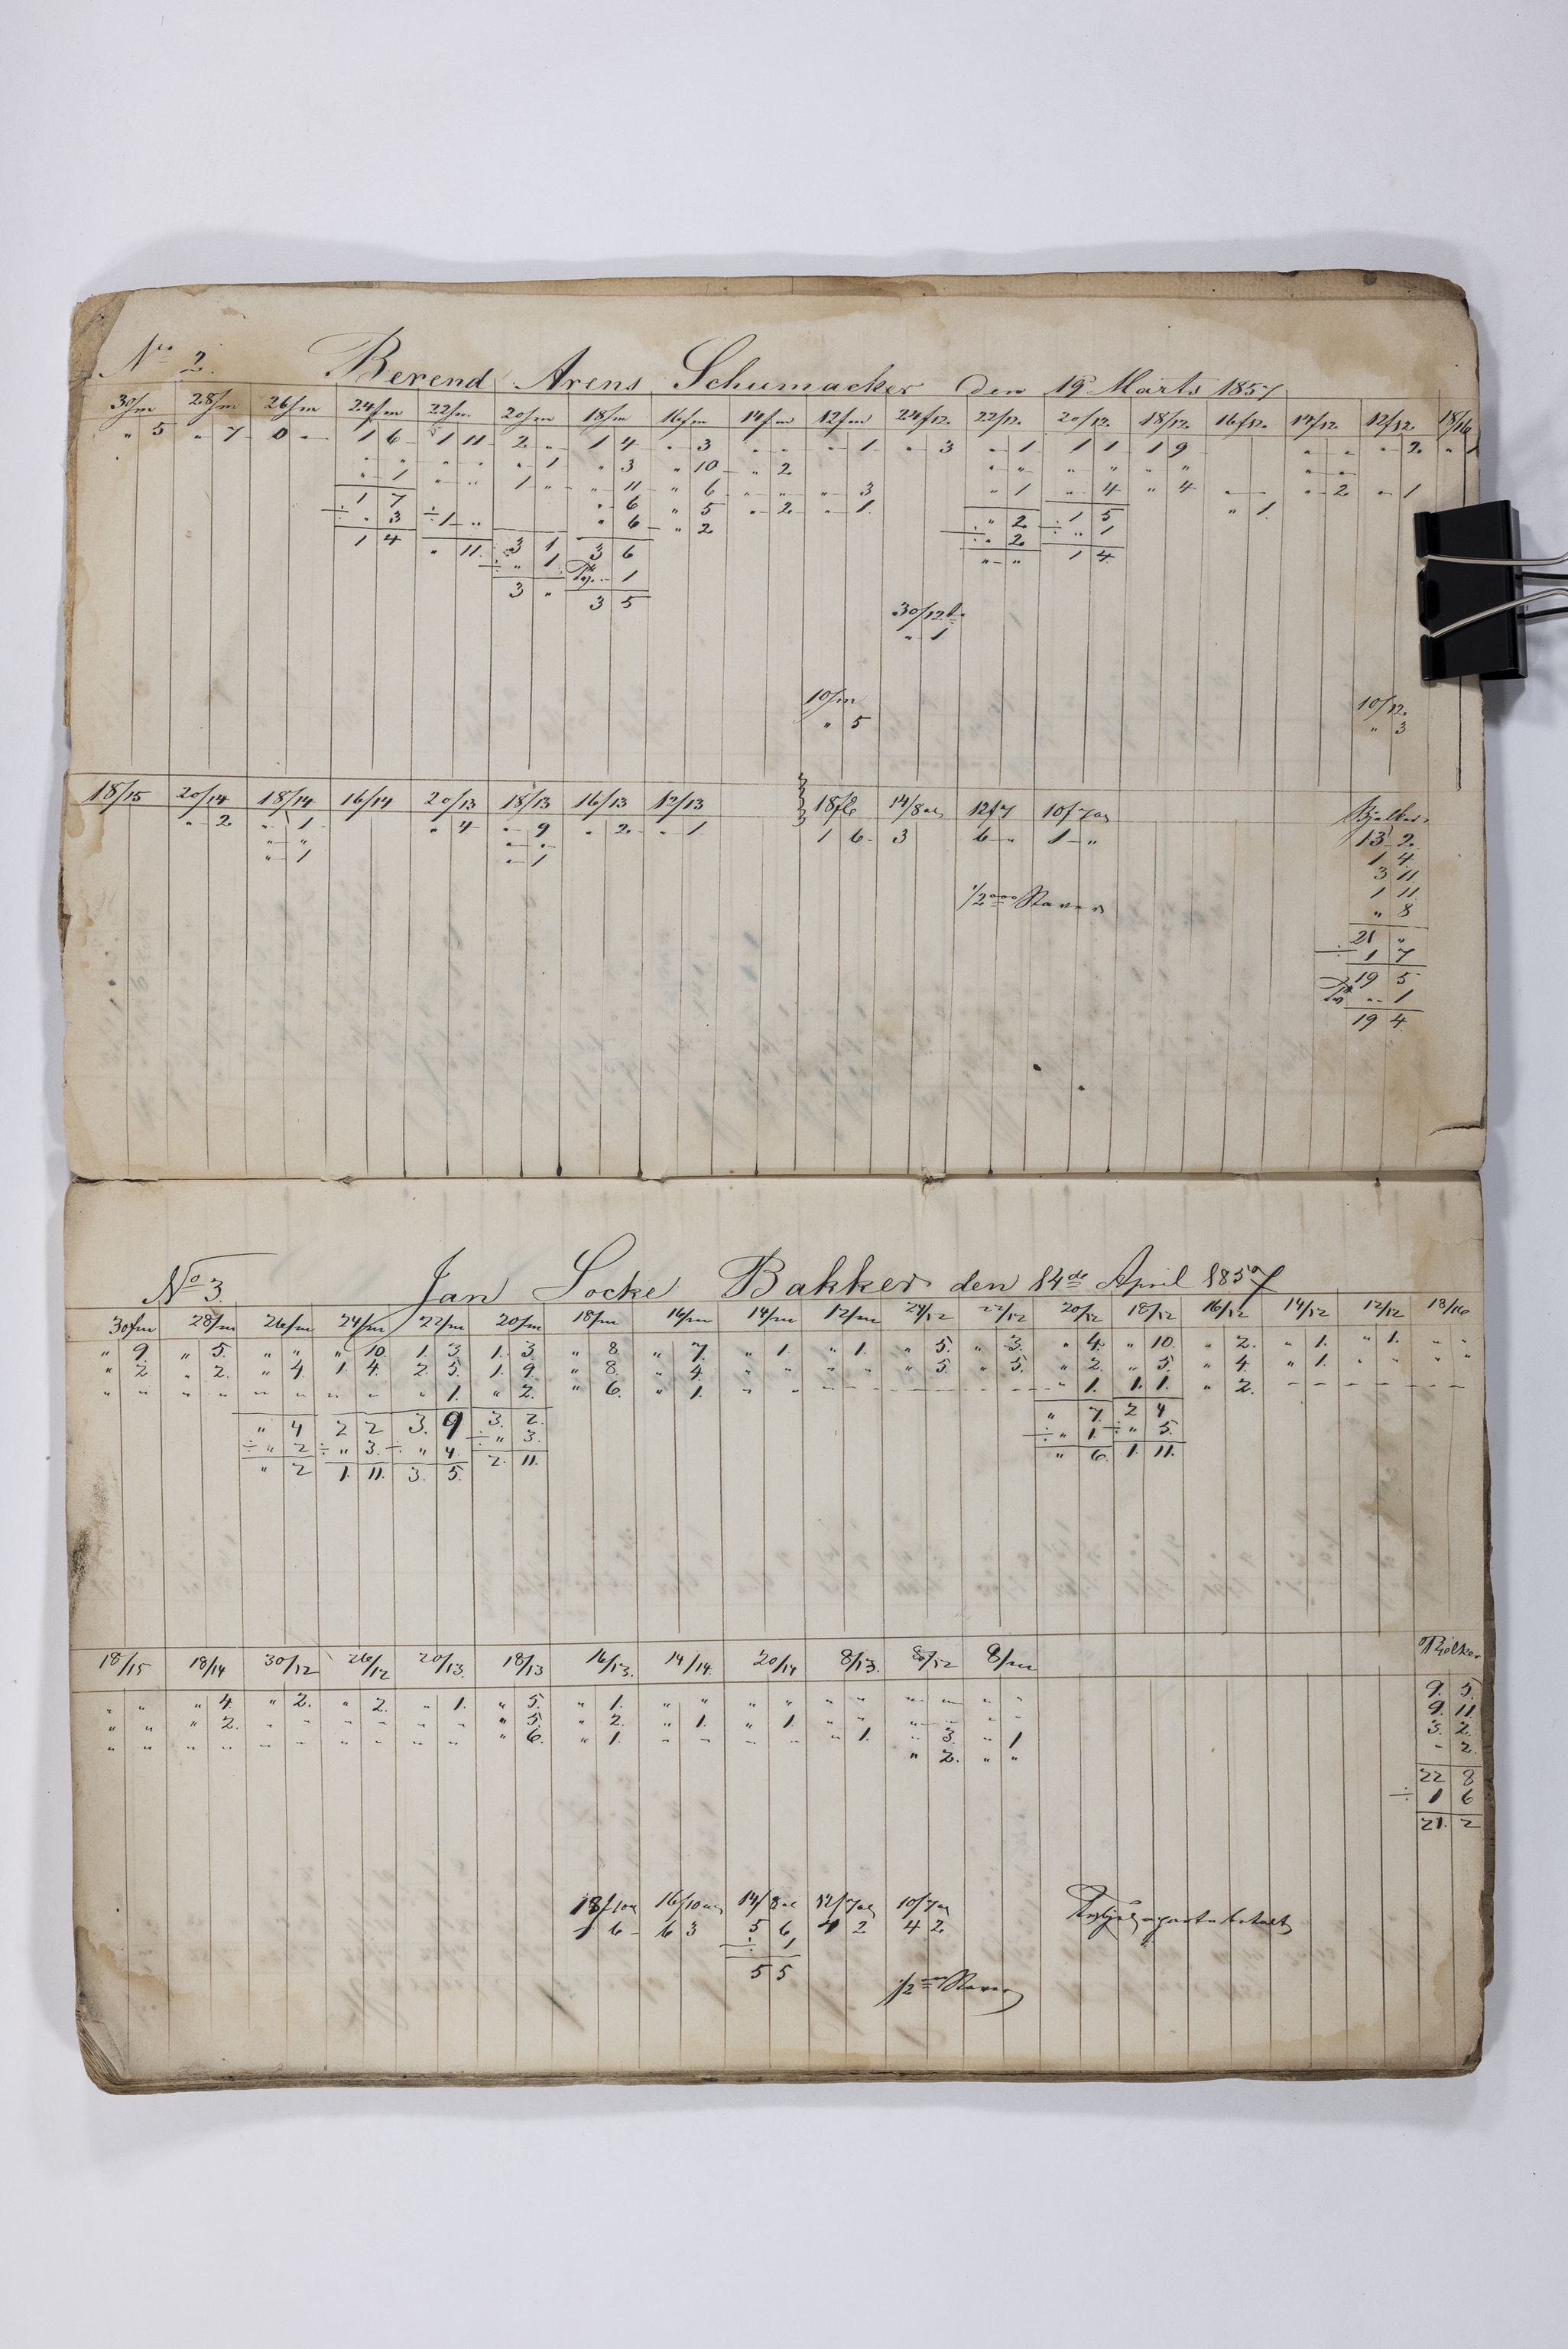 No 2. Berend Arens Schumacker den 19 Marts 1857
30/m 28/m 26/m 24/m 22/m 20/m 18/m 16/m 14/m 12/m 24/12. 22/12. 20/12. 18/12. 16/12. 14/12. 12/12 18/16
" 5 " 7 0 " 1 6 1 11 2 " 1 4 " 3 " " " 1 " 3 " 1 1 1 1 9 " " " 2. " 1
" " " " " 1 " 3 " 10 " 2 " " " " " " " "
" 1 " " 1 " " 11 " 6 " " " 3 " 1 " 4 " 4 " " " 2 " 1
1 7 " 6 " 5 " 2 " 1 " 1
÷ " 3 ÷ 1 " " 6 " 2 " 2 1 5
1 4 " 11 3 1 3 6 ÷ " 2 ÷ " 1
÷ " 1 " 1 " " 1 4
3 " 3 5
30/12
" 1
10/m 10/12.
" 5 " 3
18/15 20/14 18/14 16/14 20/13 18/13 16/13 12/13 14/8 12/7 10/7
" 2 " 1 " 4 " 9 " 2 " 1 1 6 3 6 " 1 "
" " " "
" 1 " 1
Bjelker
13 2.
1 4
3 11
1 11
" 8
21 "
÷ 1 7
19 5
" 1
19 4
No 3. Jan Locke Bakker den 14de April 1857
30/m 28/m 26/m 24/m 22/m 20/m 18/m 16/m 14/m 12/m 24/12 22/12 20/12 18/12 16/12 14/12 12/12 18/16
" 9. " 5. " " " 10. 1. 3. 1. 3 " 8. " 7. " 1. " 1. " 5. " 3. " 4. " 10. " 2. " 1. " 1. " "
" 2. " 2. " 4. 1. 4. 2. 5. 1. 9. " 8. " 4. " " " " " 5. " 5. " 2. " 5. " 4. " 1. " " " "
" " " " " " " " " 1. " 2. " 6. " 1. " 1. 1. 1. " 2.
" 4 2 2 3. 9 3. 2. " 7. 2 4
÷ " 2 ÷ " 3. ÷ " 4. ÷ " 3. ÷ " 1. ÷ " 5.
" 2 1. 11. 3. 5. 2. 11. " 6. 1. 11.
18/15 18/14 30/12 26/12 20/13. 18/13 16/13. 14/14. 20/14 8/13. 8/12 8/m Bjelker
" " " 4. " 2. " 2. " 1. " 5. " 1. " " " " " " " " " " 9. 5.
" " " 2. " " " " " " " 5. " 2. " 1. " 1. " " " " " " 9. 11.
" " " " " " " " " " " 6. " 1. " " " " " 1. " 3. " 1 3. 2.
" 2. " " " 2.
22 8
÷ 1 6
21. 2
18/10 16/10 14/8 12/7 10/7
1 6 6 3 5 6 4 2 4 2
÷ 1
5 5